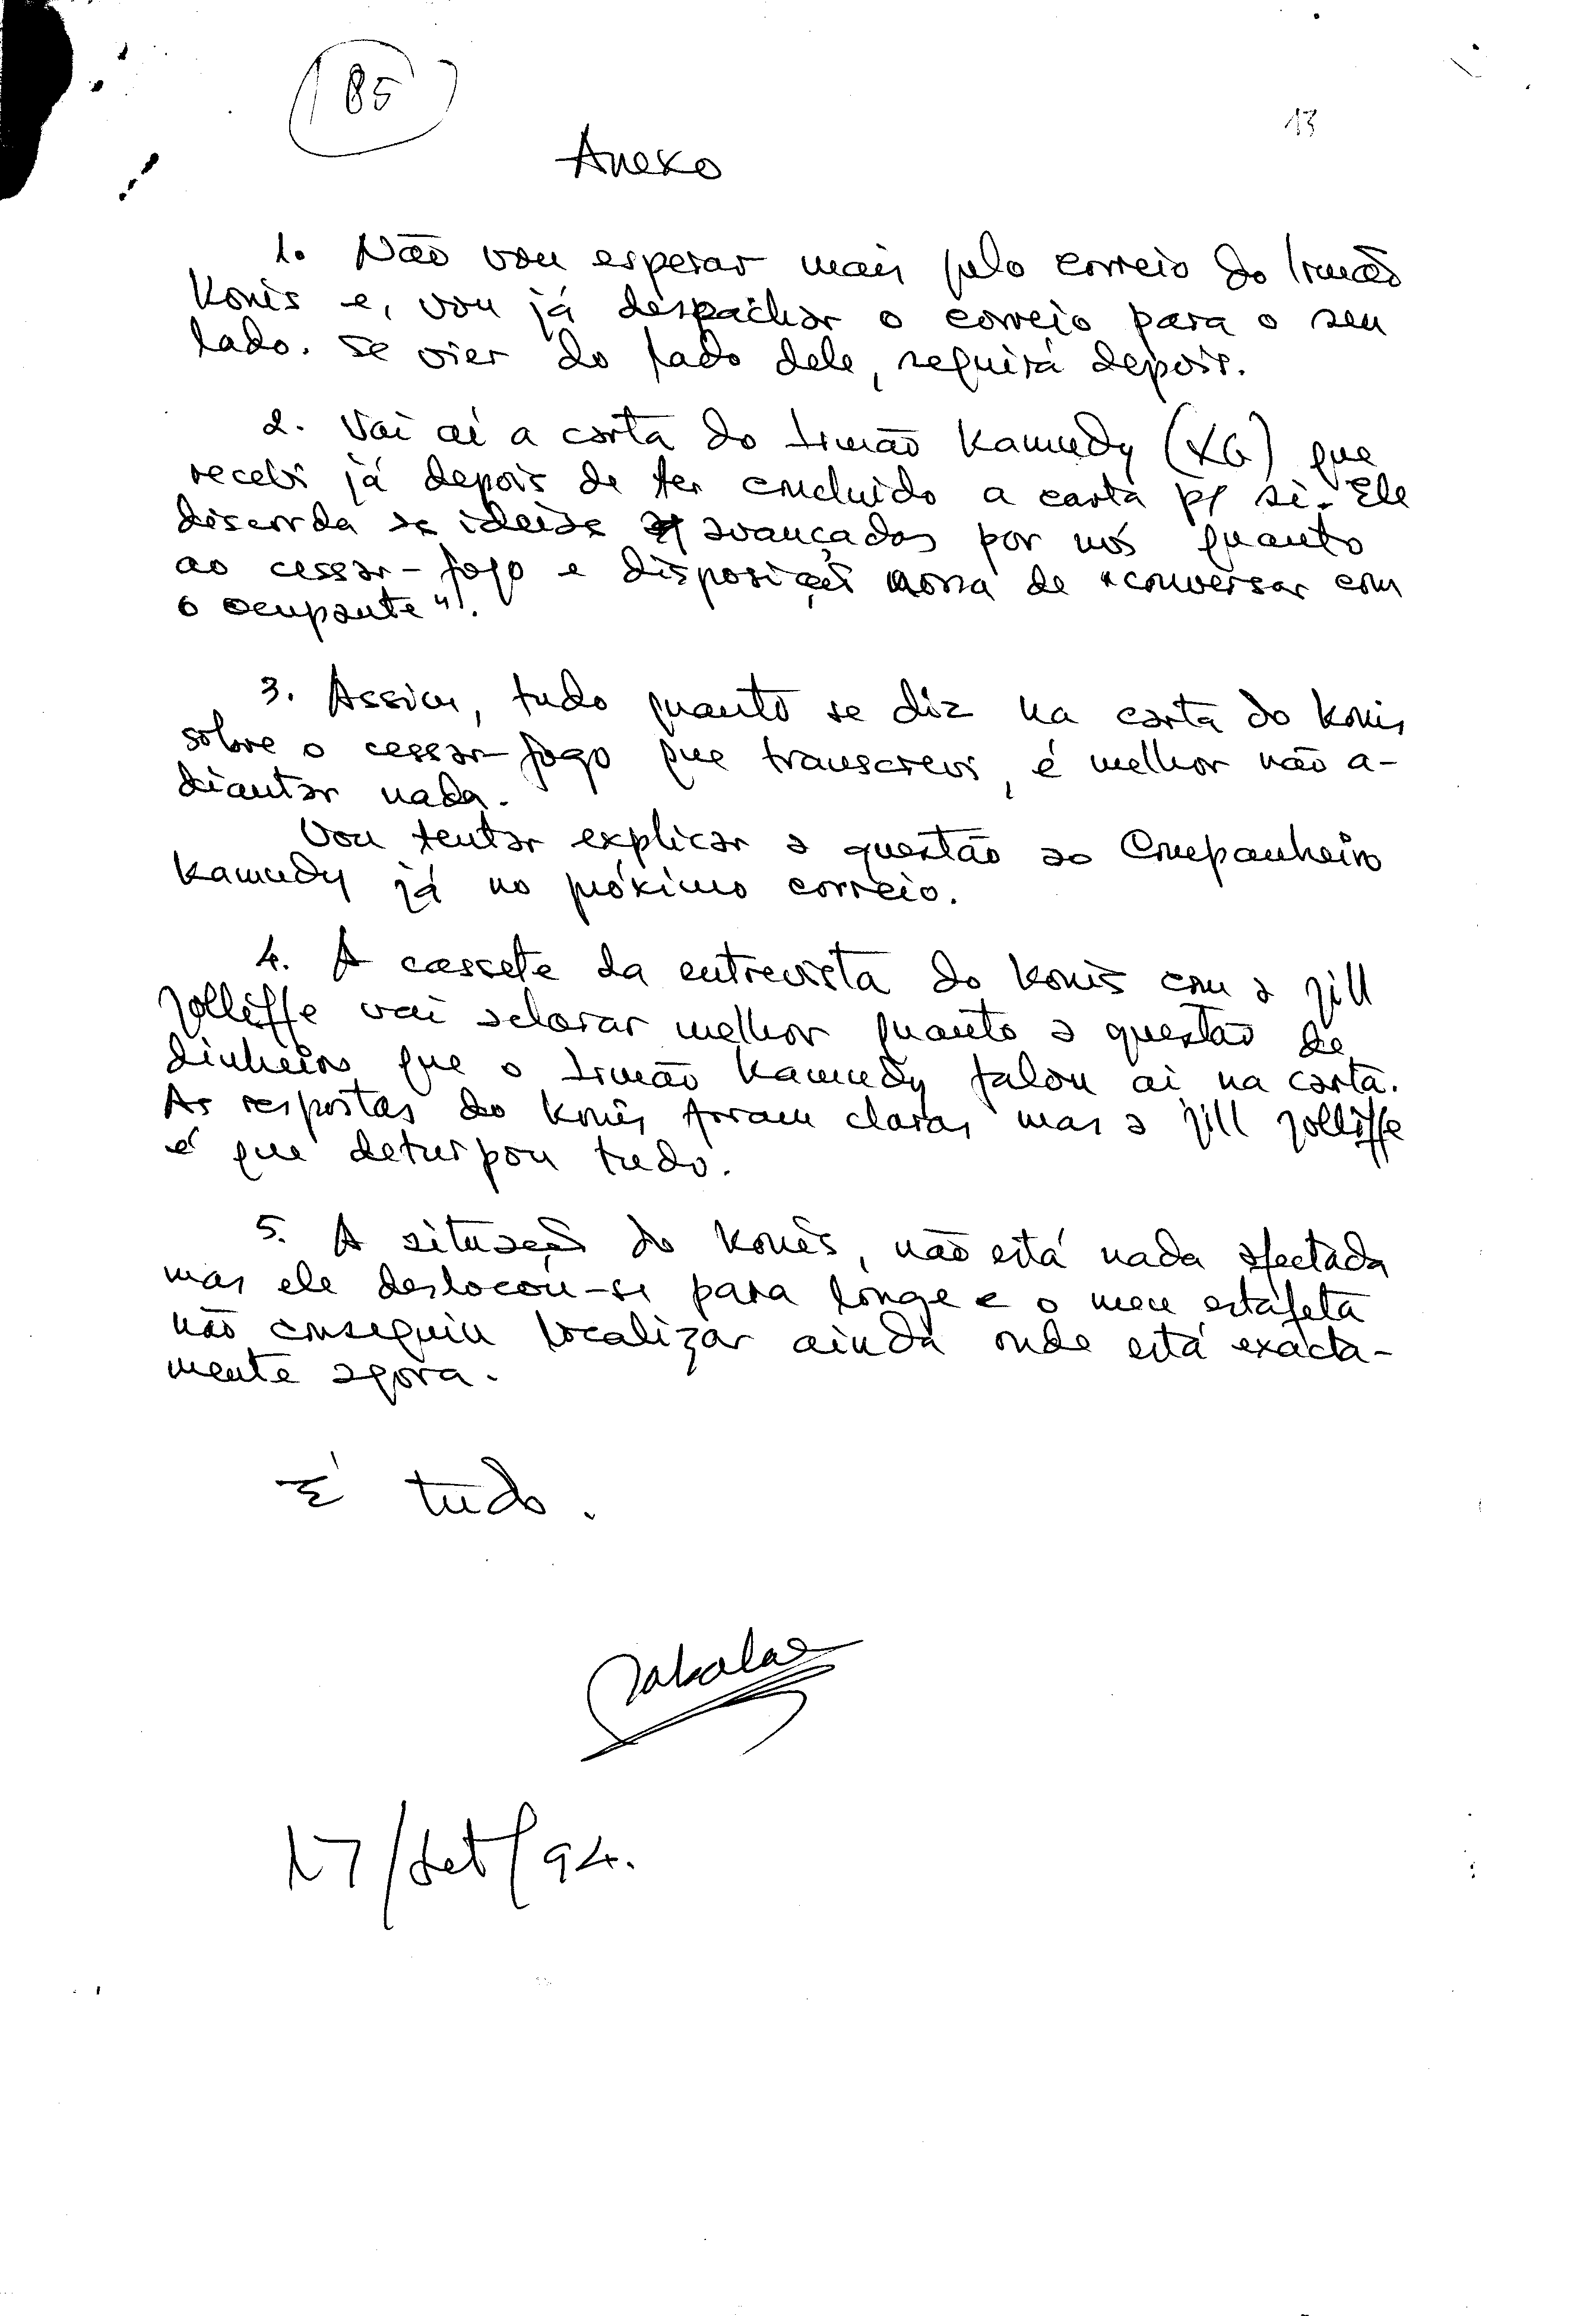 185
13
Anexo
1. Não vou esperar mais pelo correio do Irmão
Konis e, vou já despachar o correio para o seu
lado. Se vier do lado dele, seguirá depois.
2. Vai aí a carta do Irmão Kamudy (XG) que
recebi já depois de ter concluido a carta p/ si. Ele
discorda as ideias avançadas por nós quanto
ao cessar-fogo e disposição nossa de "conversar com
o ocupante".
3. Assim, tudo quanto se diz na carta do Konis
sobre o cessar-fogo que transcrevi, é melhor não a-
diantar nada.
Vou tentar explicar a questão ao Companheiro
Kamudy já no próximo correio.
4. A cassete da entrevista do Konis com a Jill
Jolliffe vai aclarar melhor quanto a questão de
dinheiro que o Irmão Kamudy falou aí na carta.
As respostas do Konis foram claras mas a Jill Jolliffe
é que deturpou tudo.
5. A situação do Konis, não está nada afectada
mas ele deslocou-se para longe e o meu estafeta
não conseguiu localizar ainda onde está exacta-
mente agora.
É tudo.
17/Set/94.